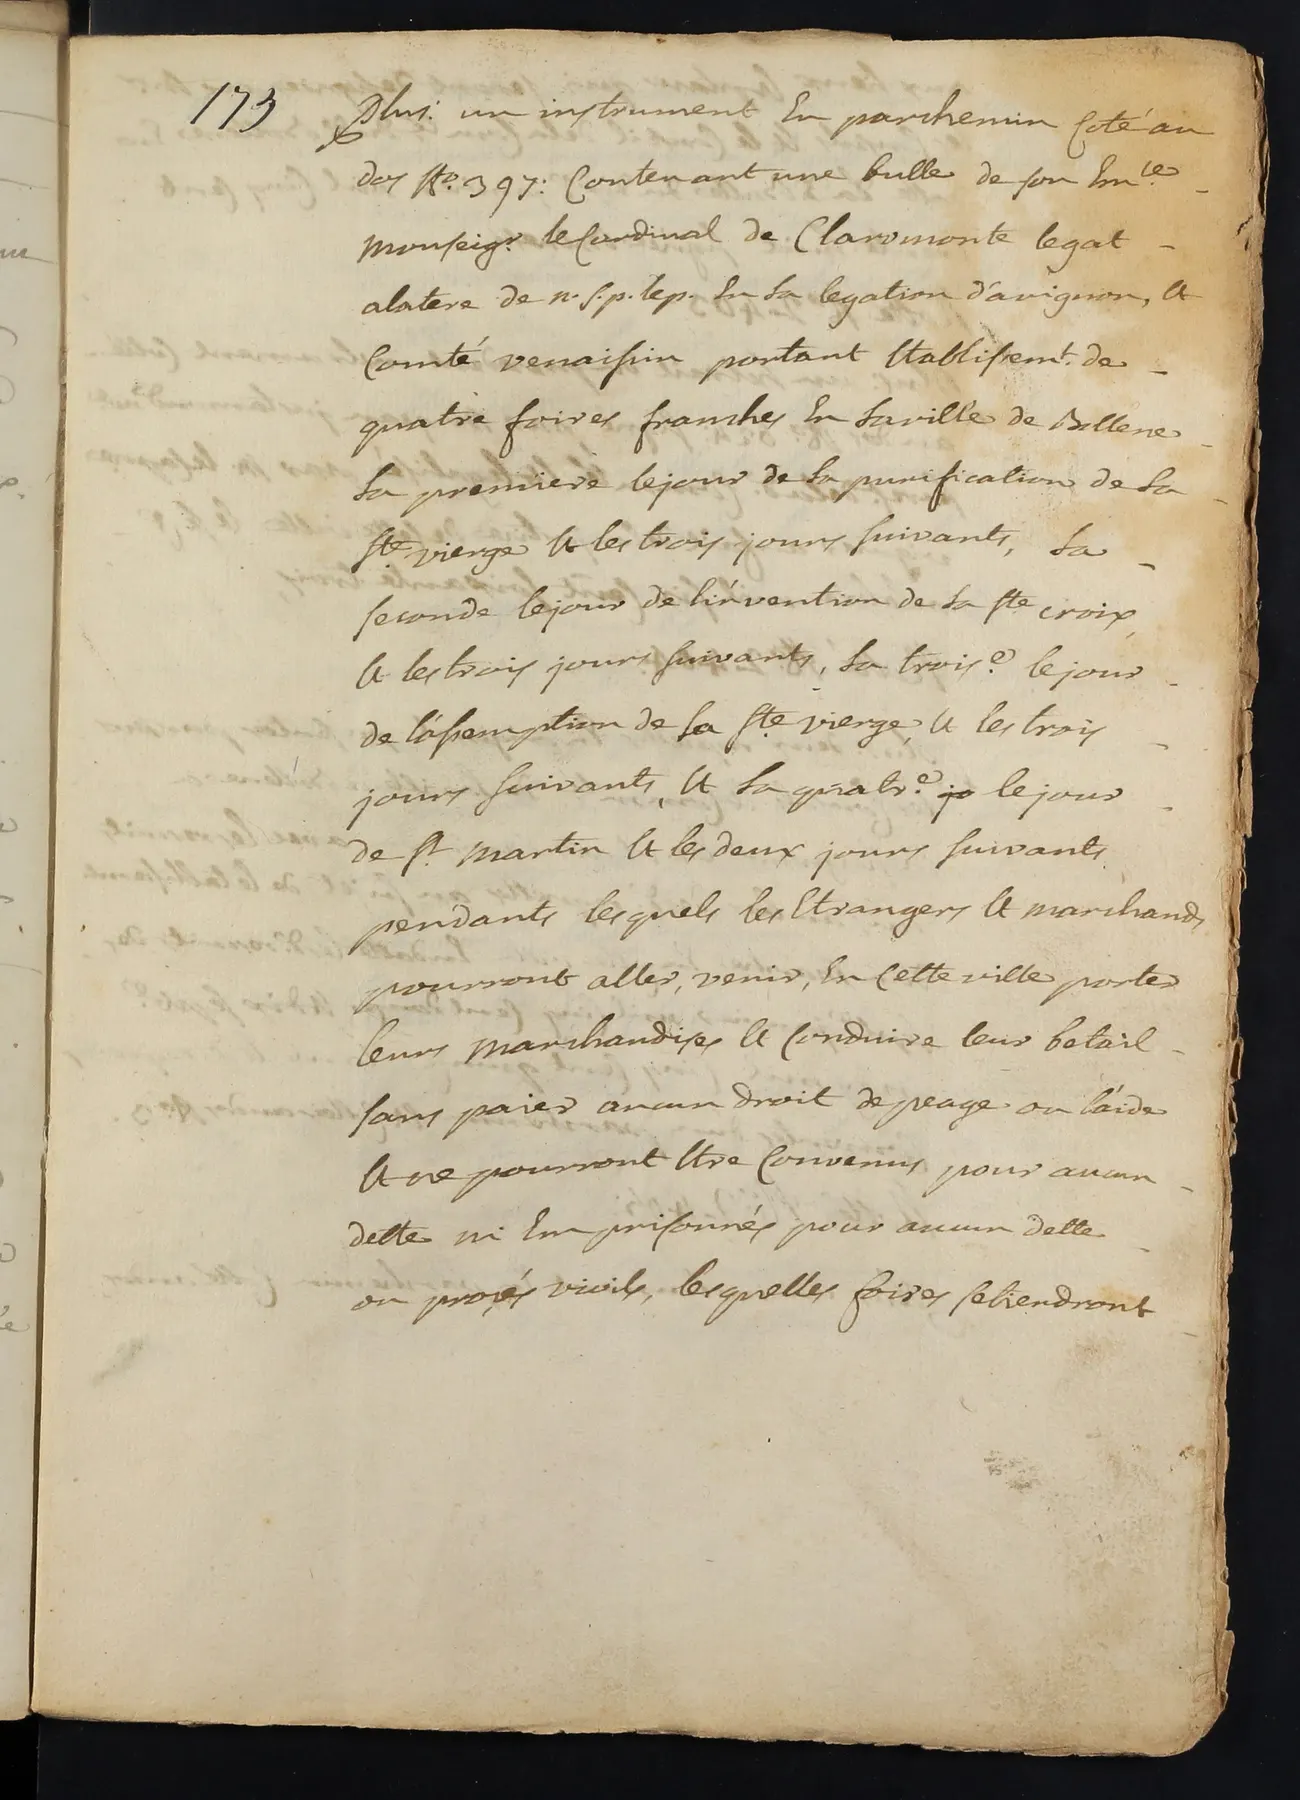 173 Plus: un instrument En parchemin Coté au
dos No. 397: Contenant une bulle de son Emce.
monseigr. le Cardinal de Claromonte legat
alatere de n. s. p. lep. En sa legation d'avignon, Et
Comté venaissin portant Etablissemt. de
quatre foires franches En la ville de Bollene
La premiere le jour de la purification de la
Ste. vierge Et les trois jours suivants, La
seconde le jour de l'invention de la Ste croix,
Et les trois jours suivants, La trois.e le jour
de l'assemption de la Ste. vierge, Et les trois
jours suivants, Et la quatr.e le jour
de St. martin Et les deux jours suivants
pendants lesquels les Etrangers Et marchands
pourront aller, venir, En Cette ville porter
leurs marchandises Et Conduire leur betail
sans paier aucun droit de peage ou l'aide
Et ne pourront Etre Convenus pour aucun
dette ni Emprisonnés pour aucun dette
ou procés civils, lesquelles foires se tiendront